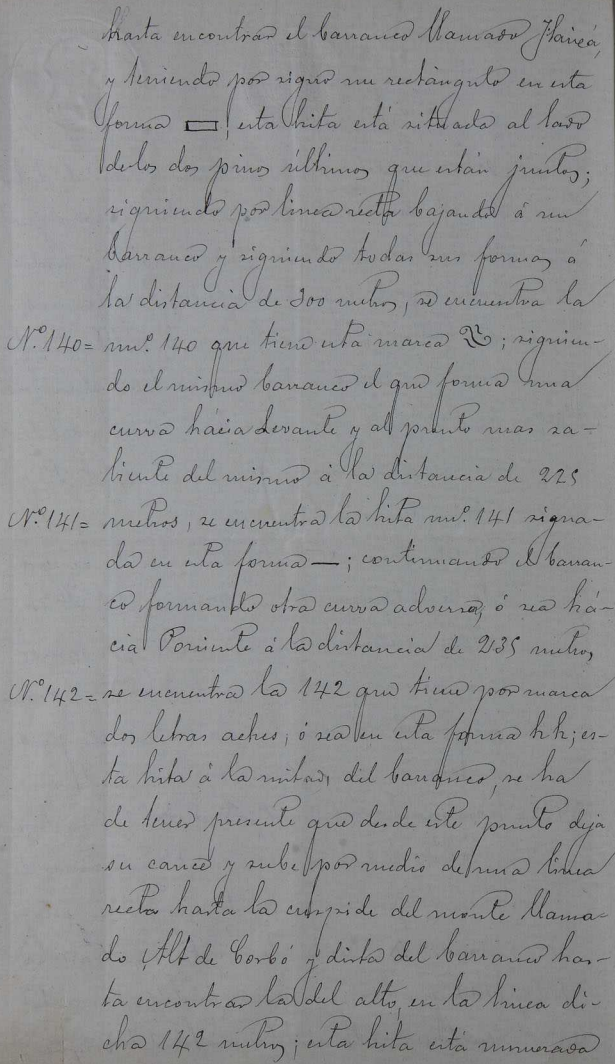 hasta encontrar el barranco llamado
y teniendo por signo un rectángulo en esta
forma ▭; esta hita está situada al lado
de los dos pinos últimos que están juntos;
siguiendo por linea recta bajando á un
barranco y siguiendo todas sus formas á
la distancia de 300 metros, se encuentra la
N.º 140= nu.º 140 que tiene esta marca ; siguien-
do el mismo barranco el que forma una
curva hácia Levante y al punto mas sa-
liente del mismo á la distancia de 225
N.º 141= metros, se encuentra la hita nu.º 141 signa-
da en esta forma —; continuando el barran-
co formando otra curva adversa, ó sea há-
cia Poniente á la distancia de 235 metros,
N.º 142= se encuentra la 142 que tiene por marca
dos letras aches, ó sea en esta forma hh; es-
ta hita á la mitad del barranco, se ha
de tener presente que desde este punto deja
su cauce y sube por medio de una linea
recta hasta la cuspide del monte llama-
do Alt de Corbó y dista del barranco has-
ta encontrar la del alto, en la linea di-
cha 142 metros; esta hita está numerada